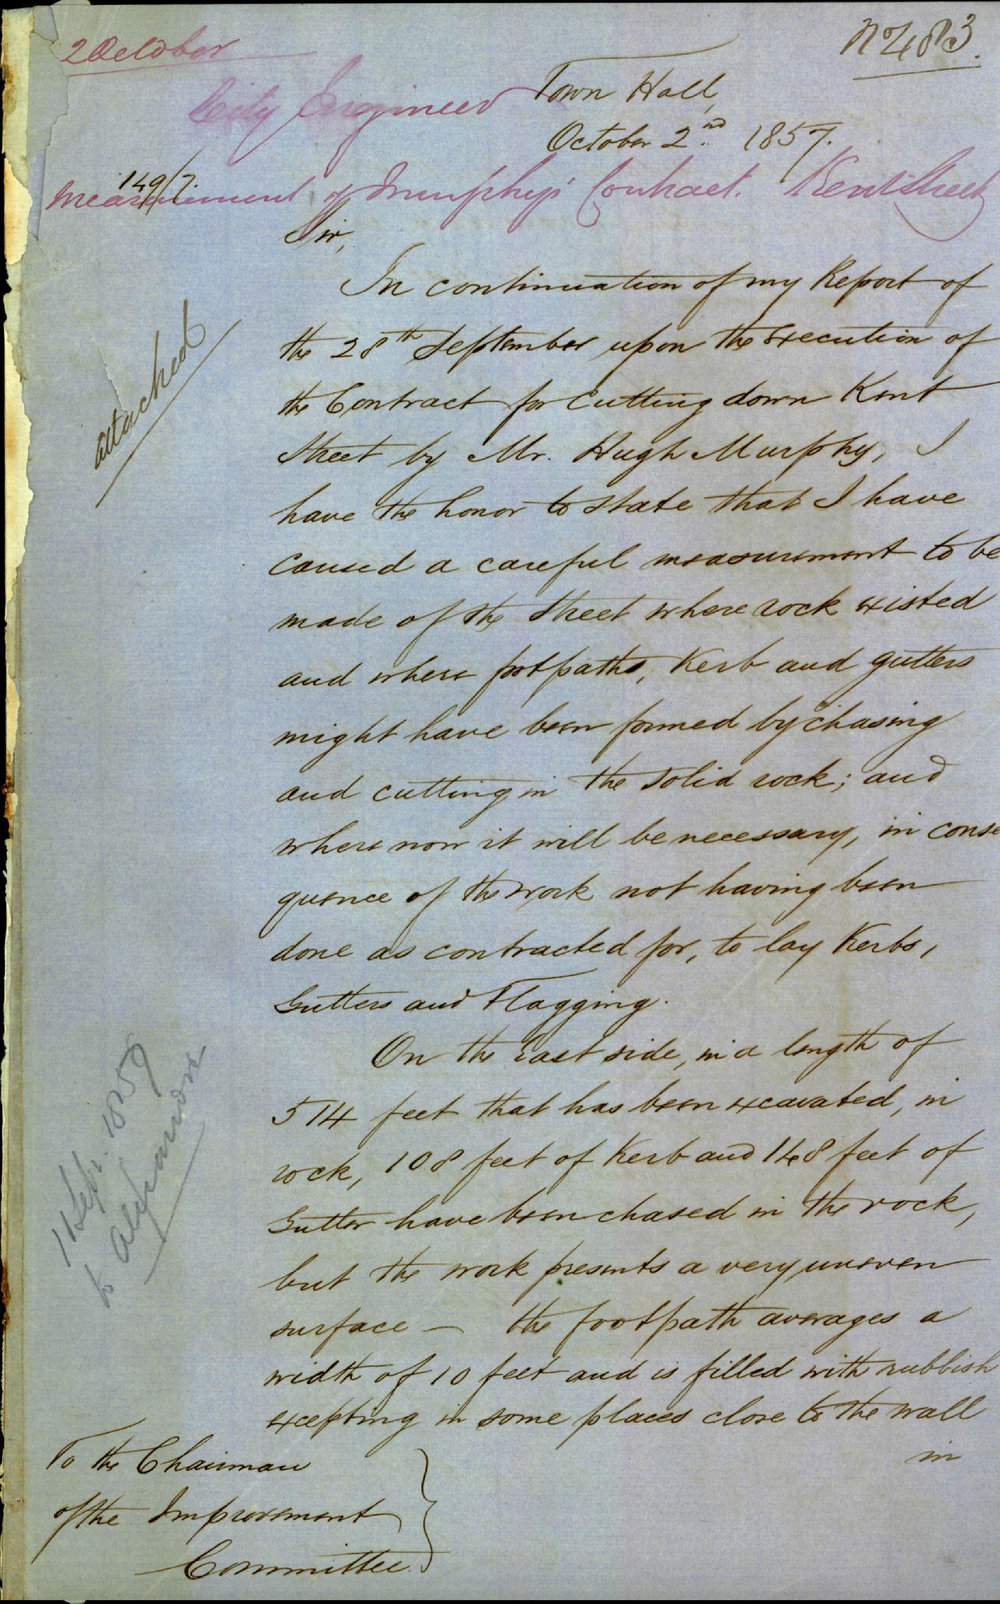 2 October
No 483.
City Engineer
Town Hall,
October 2nd. 1857.
149/7.
Measurement of Murphy's Contract. Kent Street
Sir,
In continuation of my Report of
the 28th September upon the execution of
the Contract for Cutting down Kent
Street by Mr. Hugh Murphy, I
have the honor to state that I have
caused a careful measurement to be
made of the Street where rock existed
and where footpaths, Kerb and gutters
might have been formed by chasing
and cutting in the solid rock; and
where now it will be necessary, in conse
quence of the work not having been
done as contracted for, to lay Kerbs,
Gutters and Flagging.
On the East side, in a length of
514 feet that has been excavated, in
rock, 108 feet of Kerb and 148 feet of
Gutter have been chased in the rock,
but the work presents a very uneven
surface — the footpath averages a
width of 10 feet and is filled with rubbish
excepting in some places close to the wall
in
attached
11 Sept. 1859
to Alderman
To the Chairman
of the Improvement
Committee.